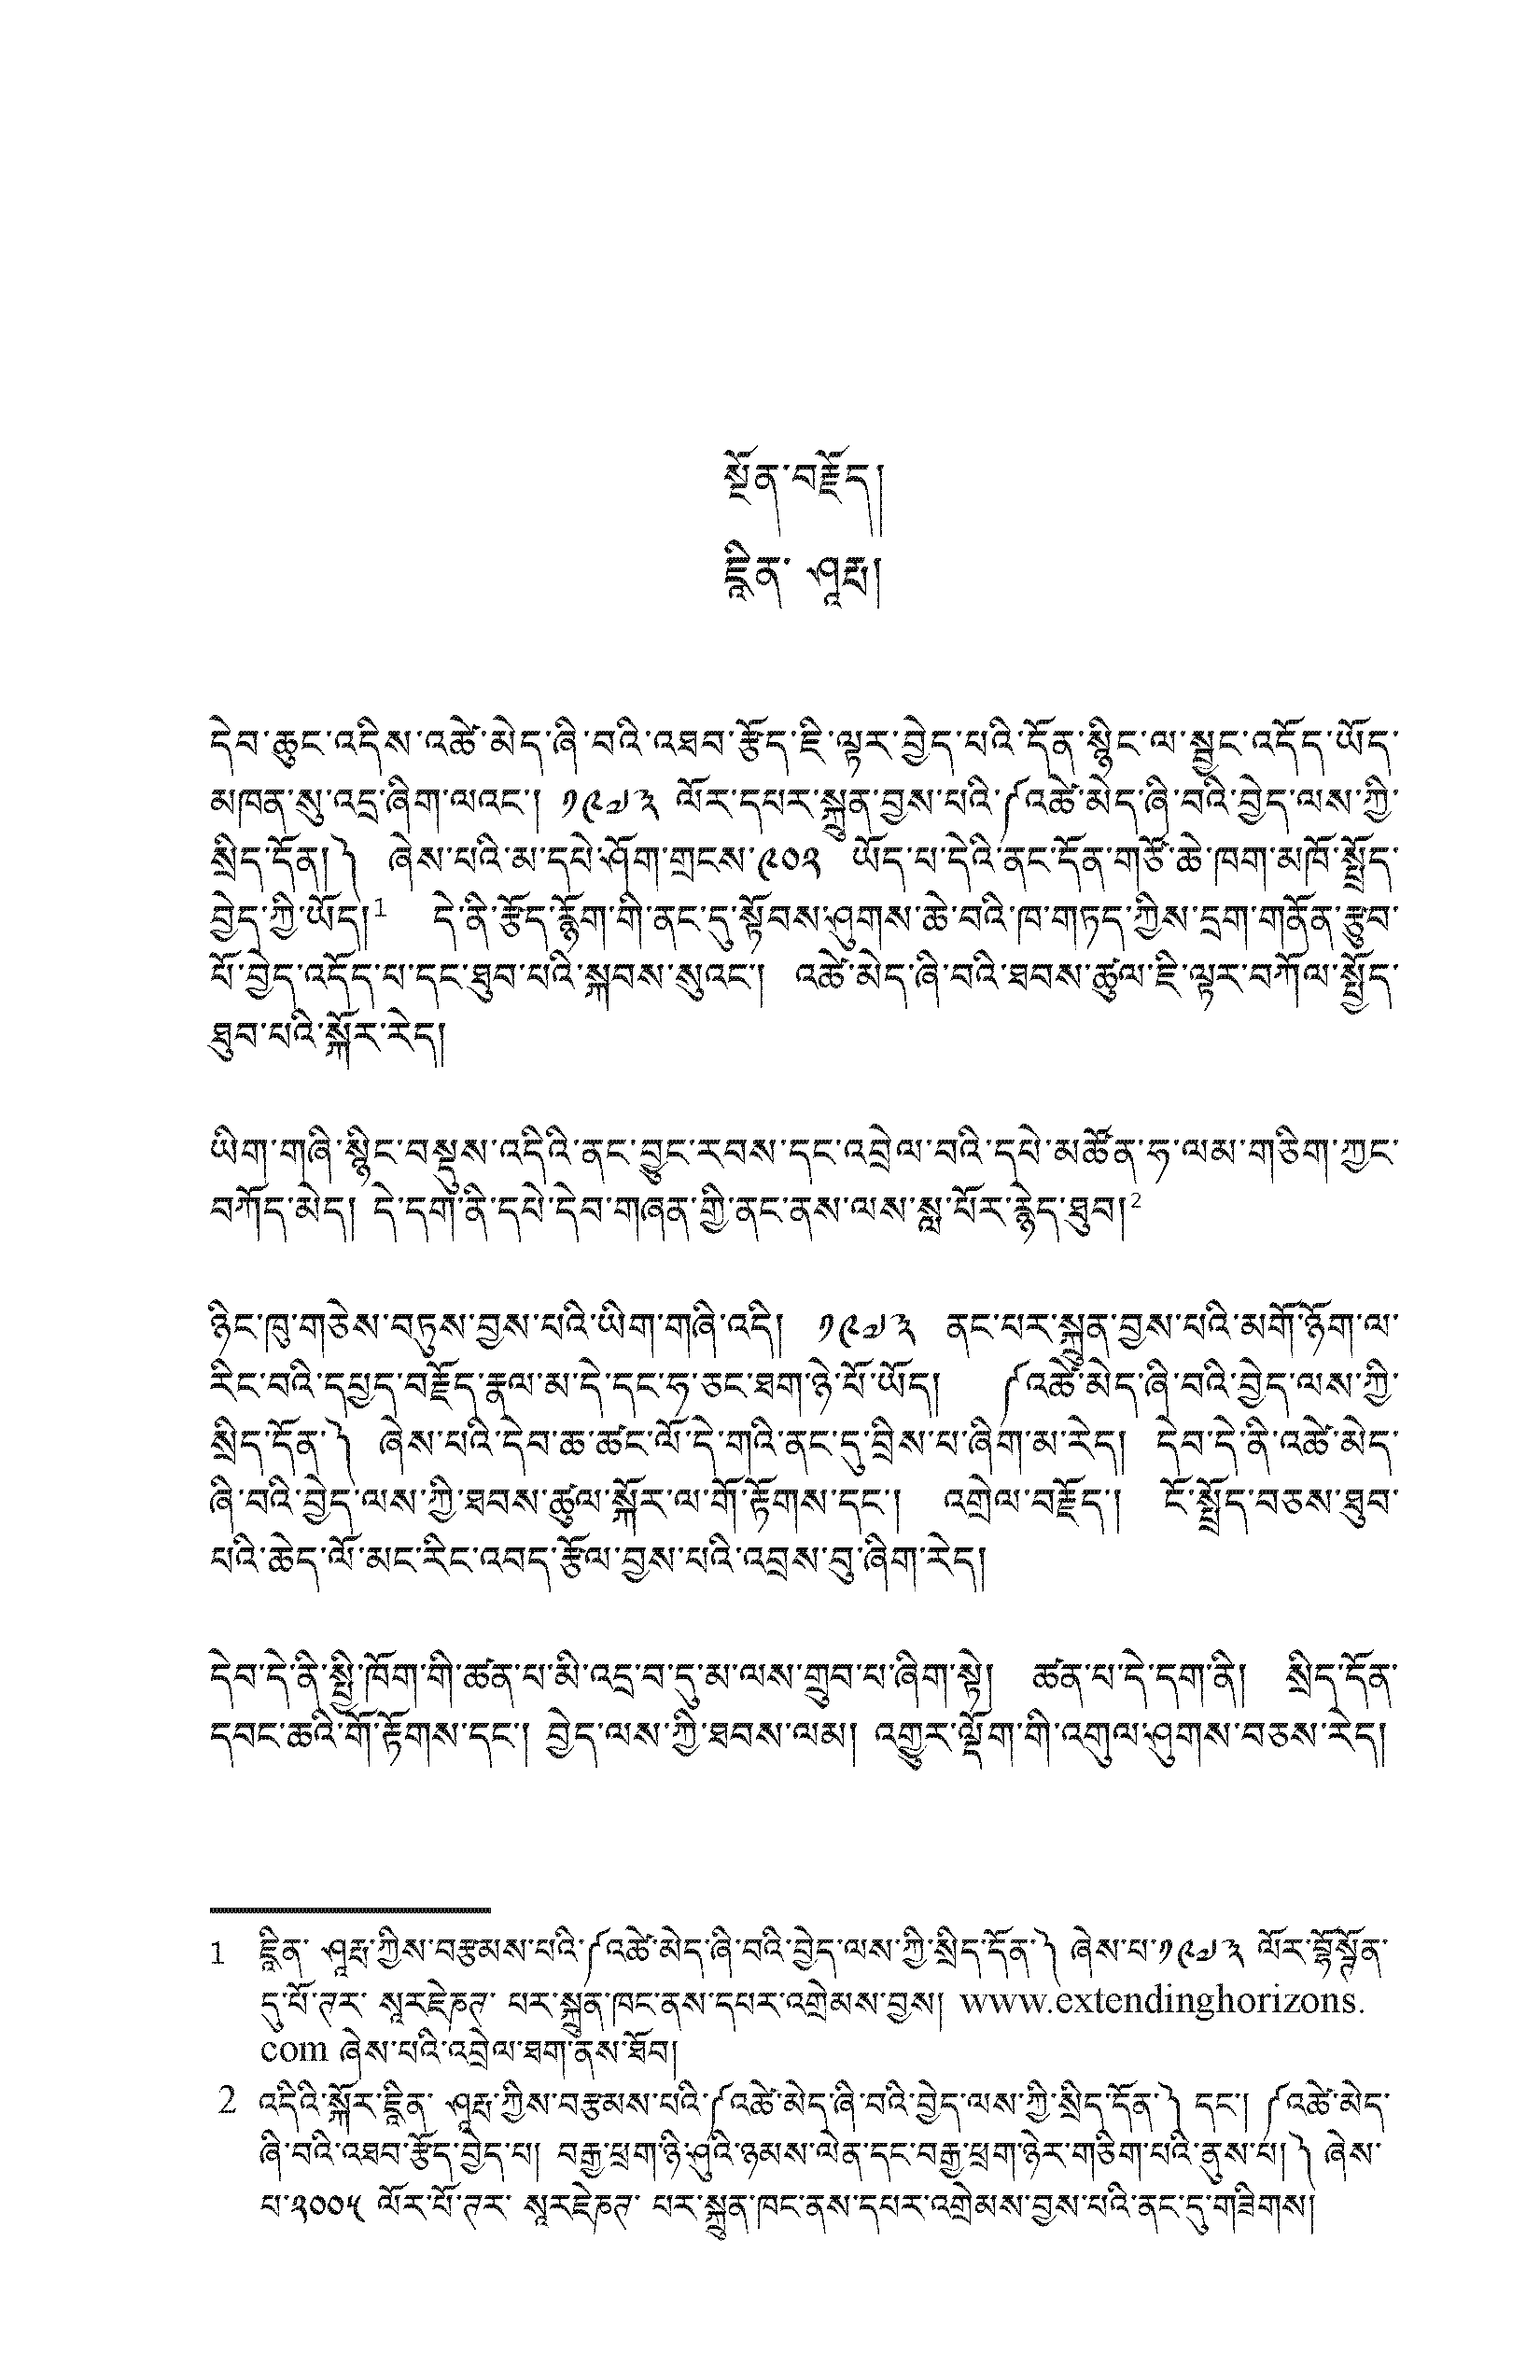 སྔོན་བརྗོད།
ཇཱིན་ ཤཱརྤ།
དེབ་ཆུང་འདིས་འཚེ་མེད་ཞི་བའི་འཐབ་རྩོད་ཇི་ལྟར་བྱེད་པའི་དོན་སྙིང་ལ་སྦྱང་འདོད་ཡོད་
མཁན་སུ་འདྲ་ཞིག་ལའང་། ༡༩༧༣ ལོར་དཔར་སྐྲུན་བྱས་པའི་༼འཚེ་མེད་ཞི་བའི་བྱེད་ལས་ཀྱི་
སྲིད་དོན།༽ ཞེས་པའི་མ་དཔེ་ཤོག་གྲངས་༩༠༢ ཡོད་པ་དེའི་ནང་དོན་གཙོ་ཆེ་ཁག་མཁོ་སྤྲོད་
བྱེད་ཀྱི་ཡོད།1 དེ་ནི་རྩོད་རྙོག་གི་ནང་དུ་སྟོབས་ཤུགས་ཆེ་བའི་ཁ་གཏད་ཀྱིས་དྲག་གནོན་རྩུབ་
པོ་བྱེད་འདོད་པ་དང་ཐུབ་པའི་སྐབས་སུའང་། འཚེ་མེད་ཞི་བའི་ཐབས་ཚུལ་ཇི་ལྟར་བཀོལ་སྤྱོད་
ཐུབ་པའི་སྐོར་རེད།
ཡིག་གཞི་སྙིང་བསྡུས་འདིའི་ནང་བྱུང་རབས་དང་འབྲེལ་བའི་དཔེ་མཚོན་ཧ་ལམ་གཅིག་ཀྱང་
བཀོད་མེད། དེ་དག་ནི་དཔེ་དེབ་གཞན་གྱི་ནང་ནས་ལས་སླ་པོར་རྙེད་ཐུབ།2
ཉིང་ཁུ་གཅེས་བཏུས་བྱས་པའི་ཡིག་གཞི་འདི། ༡༩༧༣ ནང་པར་སྐྲུན་བྱས་པའི་མགོ་ཉོག་ལ་
རིང་བའི་དཔྱད་བརྗོད་རྣལ་མ་དེ་དང་ཧ་ཅང་ཐག་ཉེ་པོ་ཡོད། ༼འཚེ་མེད་ཞི་བའི་བྱེད་ལས་ཀྱི་
སྲིད་དོན་༽ ཞེས་པའི་དེབ་ཆ་ཚང་ལོ་དེ་གའི་ནང་དུ་བྲིས་པ་ཞིག་མ་རེད། དེབ་དེ་ནི་འཚེ་མེད་
ཞི་བའི་བྱེད་ལས་ཀྱི་ཐབས་ཚུལ་སྐོར་ལ་གོ་རྟོགས་དང་། འགྲེལ་བརྗོད་། ངོ་སྤྲོད་བཅས་ཐུབ་
པའི་ཆེད་ལོ་མང་རིང་འབད་རྩོལ་བྱས་པའི་འབྲས་བུ་ཞིག་རེད།
དེབ་དེ་ནི་སྤྱི་ཁོག་གི་ཚན་པ་མི་འདྲ་བ་དུ་མ་ལས་གྲུབ་པ་ཞིག་སྟེ། ཚན་པ་དེ་དག་ནི། སྲིད་དོན་
དབང་ཆའི་གོ་རྟོགས་དང་། བྱེད་ལས་ཀྱི་ཐབས་ལམ། འགྱུར་ལྡོག་གི་འགུལ་ཤུགས་བཅས་རེད།
1 ཇཱིན་ ཤཱརྤ་ཀྱིས་བརྩམས་པའི་༼འཚེ་མེད་ཞི་བའི་བྱེད་ལས་ཀྱི་སྲིད་དོན་༽ ཞེས་པ་༡༩༧༣ ལོར་བྷོསྟོན་
དུ་པོ་ཊར་ སཱརཇེཎཊ་ པར་སྐྲུན་ཁང་ནས་དཔར་འགྲེམས་བྱས། www.extendinghorizons.
com ཞེས་པའི་འབྲེལ་ཐག་ནས་ཐོབ།
2 འདིའི་སྐོར་ཇཱིན་ ཤཱརྤ་ཀྱིས་བརྩམས་པའི་༼འཚེ་མེད་ཞི་བའི་བྱེད་ལས་ཀྱི་སྲིད་དོན་༽ དང་། ༼འཚེ་མེད་
ཞི་བའི་འཐབ་རྩོད་བྱེད་པ། བརྒྱ་ཕྲག་ཉི་ཤུའི་ཉམས་ལེན་དང་བརྒྱ་ཕྲག་ཉེར་གཅིག་པའི་ནུས་པ།༽ ཞེས་
པ་༢༠༠༥ ལོར་པོ་ཊར་ སཱརཇེཎཊ་ པར་སྐྲུན་ཁང་ནས་དཔར་འགྲེམས་བྱས་པའི་ནང་དུ་གཟིགས།